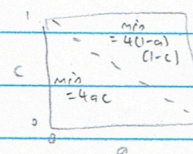 1
min
= 4(1-a)
(1-c)
c
min
= 4ac
0
0
a